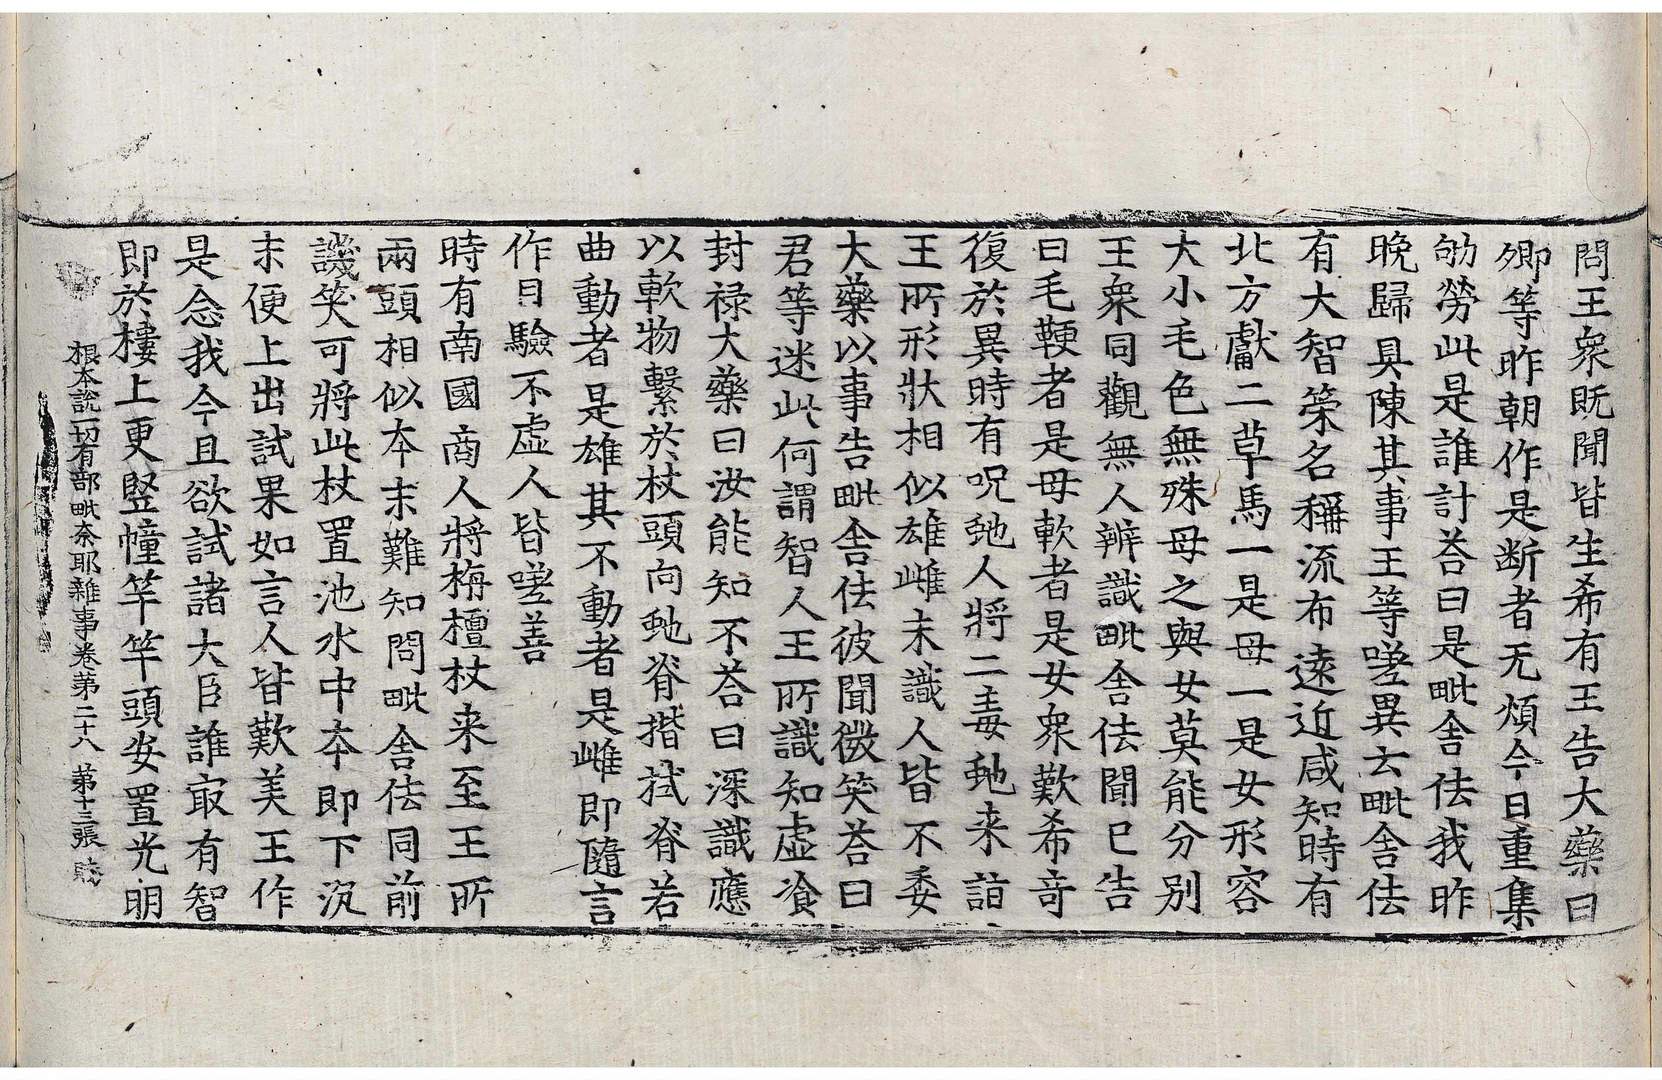 問王衆既聞皆生希有王告大藥曰
卿等昨朝作是断者无煩今日重集
劬勞此是誰計荅曰是毗舍佉我昨
晩歸具陳其事王等嗟異云毗舍佉
有大智策名稱流布遠近咸知時有
北方獻二草馬一是母一是女形容
大小毛色無殊母之與女莫能分別
王衆同觀無人辨識毗舍佉聞已告
曰毛鞕者是母軟者是女衆歎希竒
復於異時有呪虵人將二毒虵来詣
王所形狀相似雄雌未識人皆不委
大藥以事告毗舍佉彼聞微笑荅曰
君等迷此何謂智人王所識知虛飡
封禄大藥曰汝能知不荅曰深識應
以軟物繫於杖頭向虵脊揩拭脊若
曲動者是雄其不動者是雌即隨言
作目驗不虛人皆嗟善
時有南國商人將栴檀杖来至王所
兩頭相似本末難知問毗舍佉同前
譏笑可將此杖置池水中本即下沉
末便上出試果如言人皆歎美王作
是念我今且欲試諸大臣誰㝡有智
即於樓上更竪幢竿竿頭安置光明
根本說一切有部毗奈耶雜事卷第二十八 第十三張